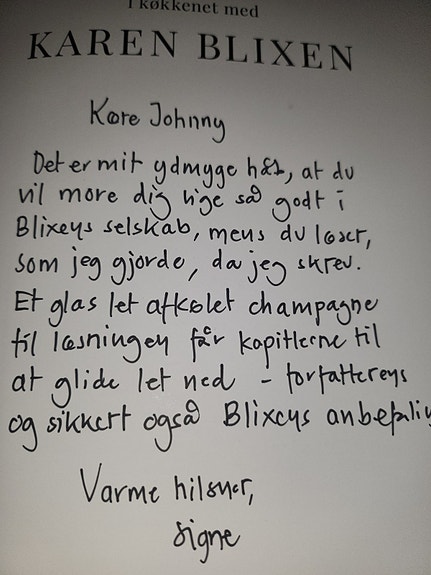 I køkkenet med
KAREN BLIXEN
Kære Johnny
Det er mit ydmyge håb, at du
vil more dig lige så godt i
Blixens selskab, mens du læser,
som jeg gjorde, da jeg skrev.
Et glas let afkølet champagne
til læsningen får kapitlerne til
at glide let ned - forfatterens
og sikkert også Blixens anbefalin
Varme hilsner,
Signe